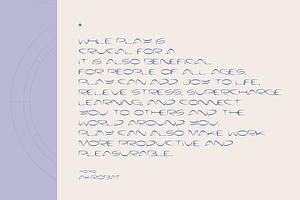 *
WHILE PLAY IS
CRUCIAL FOR A
IT IS ALSO BENEFICIAL
FOR PEOPLE OF ALL AGES.
PLAY CAN ADD JOY TO LIFE,
RELIEVE STRESS, SUPERCHARGE
LEARNING, AND CONNECT
YOU TO OTHERS AND THE
WORLD AROUND YOU.
PLAY CAN ALSO MAKE WORK
MORE PRODUCTIVE AND
PLEASURABLE.
AKROBAT